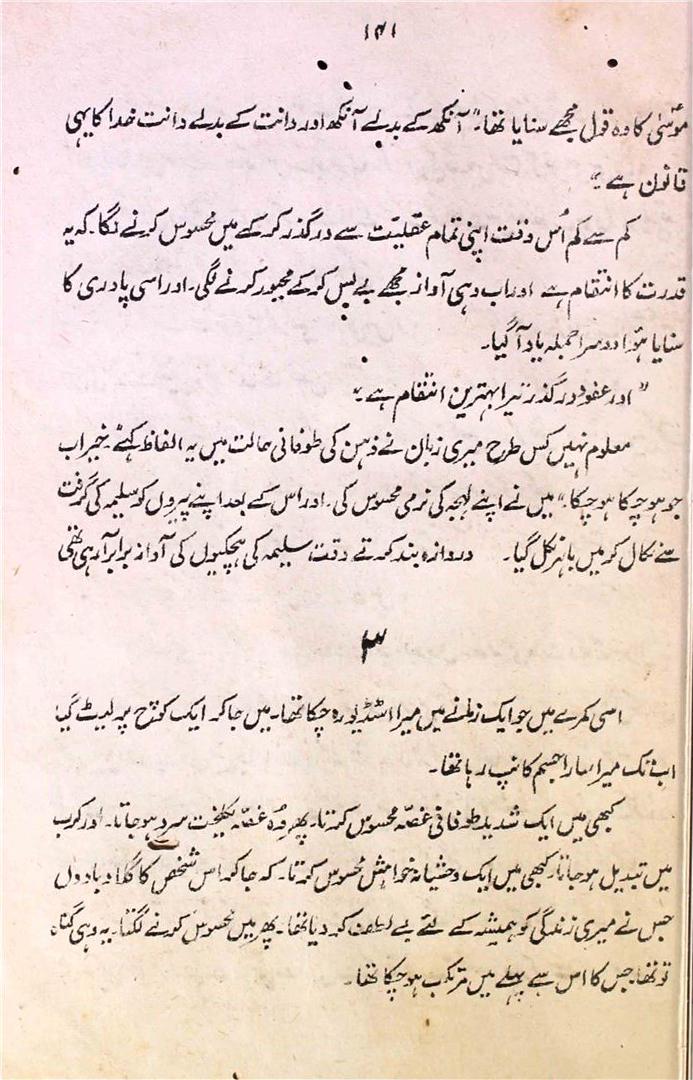 ۱۴۱
موسیٰؑ کا وہ قول مجھے سنایا تھا۔ "آنکھ کے بدلے آنکھ اور دانت کے بدلے دانت خدا کا یہی
قانون ہے"
کم سے کم اُس وقت اپنی تمام عقلیت سے درگذر کرکے میں محسوس کرنے لگا۔ کہ یہ
قدرت کا انتقام ہے اور اب وہی آواز مجھے بے بس کرکے مجبور کرنے لگی۔ اور اسی پادری کا
سنایا ہوا دوسرا جملہ یاد آگیا۔
"اور عفو و درگذر تیرا بہترین انتقام ہے"
معلوم نہیں کس طرح میری زبان نے ذہن کی طوفانی حالت میں یہ الفاظ کہے۔ خیر اب
جو ہو چکا ہو چکا۔" میں نے اپنے لہجہ کی نرمی محسوس کی۔ اور اس کے بعد اپنے پیروں کو سلیمہ کی گرفت
سے نکال کر میں باہر نکل گیا۔ دروازہ بند کرتے وقت سلیمہ کی ہچکیوں کی آواز برابر آرہی تھی
۳
اسی کمرے میں جو ایک زمانے میں میرا اسٹڈیو رہ چکا تھا۔ میں جاکر ایک کوچ پر لیٹ گیا
اب تک میرا سارا جسم کانپ رہا تھا۔
کبھی میں ایک شدید طوفانی غصّہ محسوس کرتا۔ پھر وہ غصّہ یکلخت سرد ہو جاتا۔ اور کرب
میں تبدیل ہو جاتا۔ کبھی میں ایک وحشیانہ خواہش محسوس کرتا۔ کہ جاکر اس شخص کا گلا دبا دوں
جس نے میری زندگی کو ہمیشہ کے لئے بے لطف کر دیا تھا۔ پھر میں محسوس کرنے لگتا۔ یہ وہی گناہ
تو تھا جس کا اس سے پہلے میں مرتکب ہو چکا تھا۔